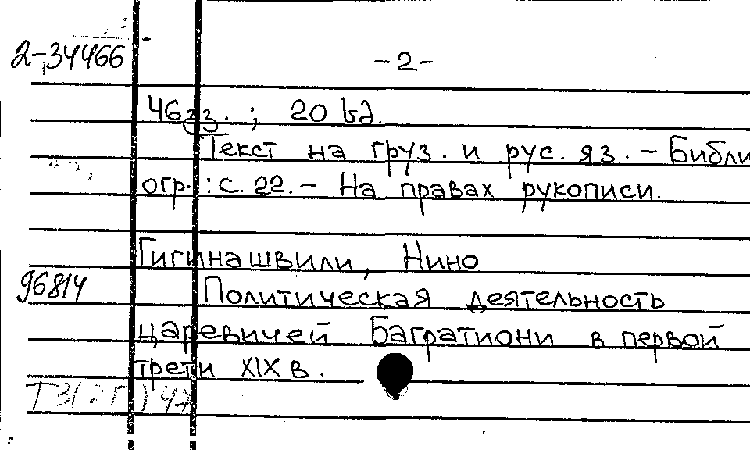 2-34466
-2-
46 გვ. ; 20 სმ
Текст на груз. и рус. яз. – Библи
огр.: с. 22. – На правах рукописи.
Гигинашвили, Нино
96814
Политическая деятельность
царевичей Багратиони в первой
трети XIX в.